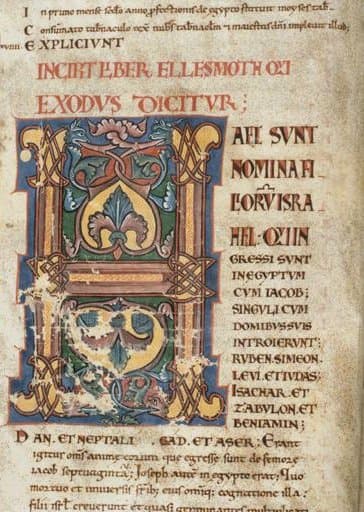 I n primo mense secdo anno pfectionis de egypto statuit moyses tab
C onsumato tabnaculo opit nubs tabnaclm 7 maiestas dni impleuit illud.
EXPLICIVNT
INCIPIT LIBER ELLESMOTH QVI
EXODVS DICITVR;
HAEC SVNT
NOMINA FI
LIORVM ISRA
HEL: QVI IN
GRESSI SVNT
IN EGYPTVM
CVM IACOB;
SINGVLI CVM
DOMIBVS SVIS
INTROIERVNT;
RVBEN. SIMEON.
LEVI. ET IVDAS;
ISACHAR. ET
ZABVLON. ET
BENIAMIN;
DAN. ET NEPTALI. GAD. ET ASER; Erant
igitur oms anime eorum que egresse sunt de femore
iacob septuaginta; Ioseph aute in egypto erat; Quo
mortuo et uniuersis frib; eius omiq; cognatione illa;
filii isrl creuerunt et quasi germinantes multiplicati